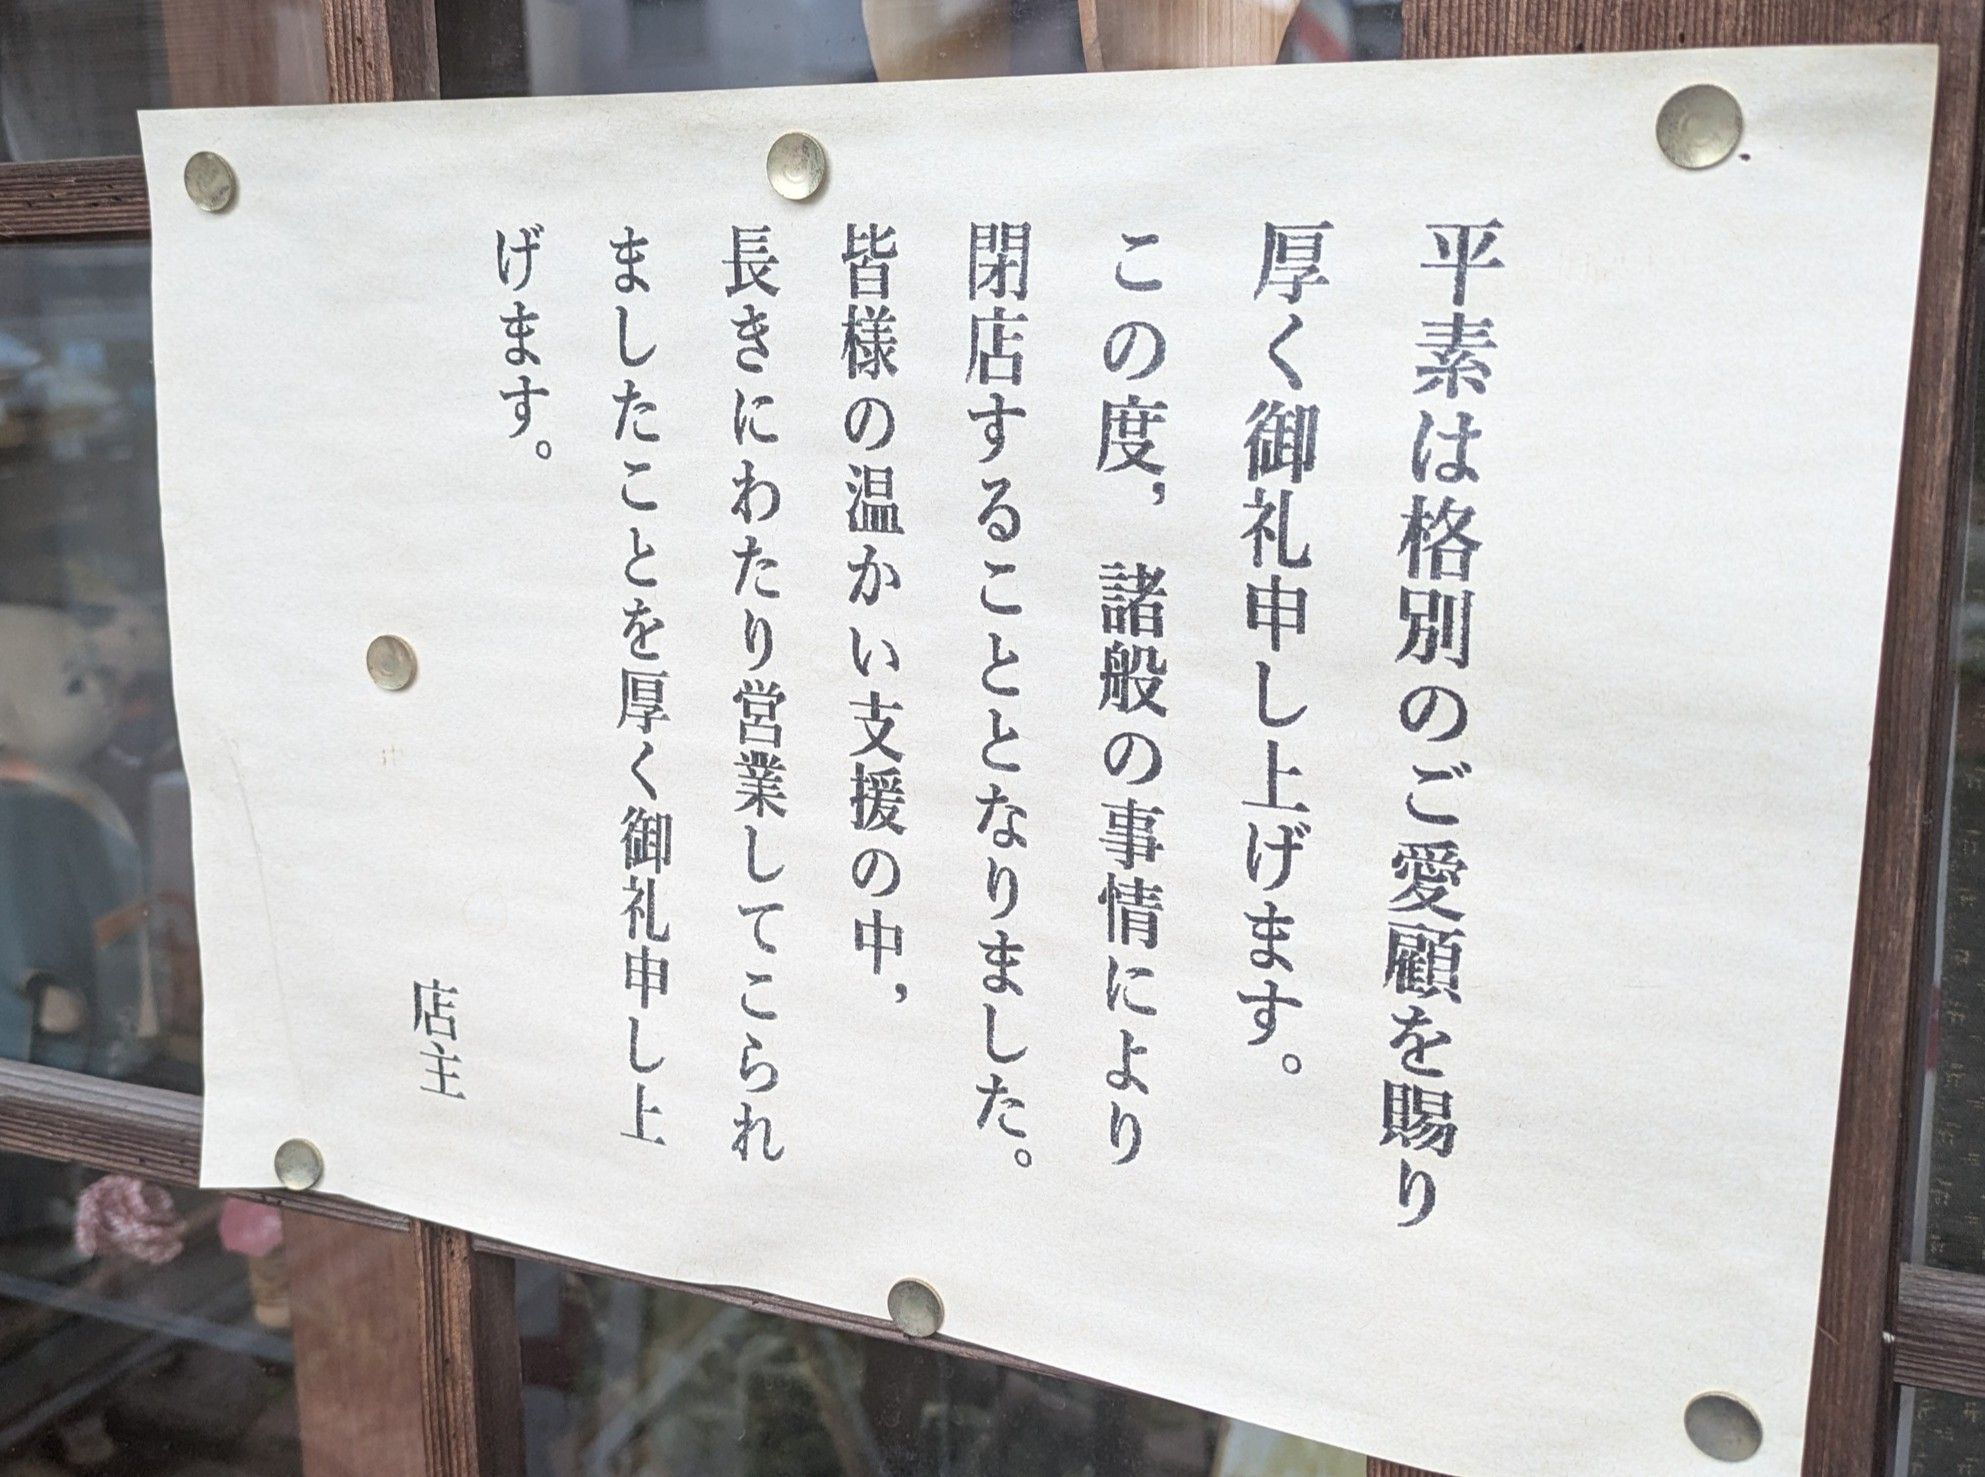 平素は格別のご愛顧を賜り
厚く御礼申し上げます。
この度，諸般の事情により
閉店することとなりました。
皆様の温かい支援の中，
長きにわたり営業してこられ
ましたことを厚く御礼申し上
げます。
店主